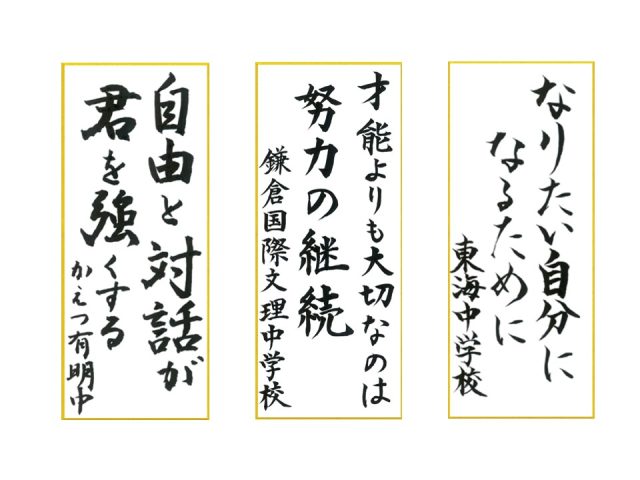 なりたい自分に
なるために
東海中学校
才能よりも大切なのは
努力の継続
鎌倉国際文理中学校
自由と対話が
君を強くする
かえつ有明中